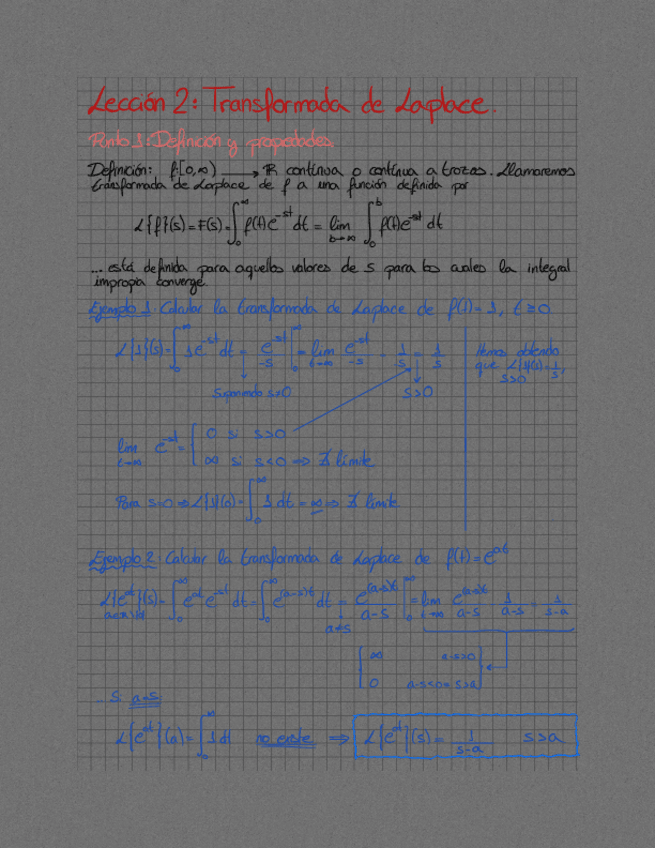 Lección 2: Transformada de Laplace.
Punto 1: Definición y propiedades
Definición: f:[0,∞) → ℝ continua o continua a trozos. Llamaremos
transformada de Laplace de f a una función definida por
ℒ{f}(s) = F(s) = ∫₀^∞ f(t)e^{-st} dt = lim_{b→∞} ∫₀^b f(t)e^{-st} dt
... está definida para aquellos valores de s para los cuales la integral
impropia converge.
Ejemplo 1: Calcular la transformada de Laplace de f(t) = 1, t ≥ 0
ℒ{1}(s) = ∫₀^∞ 1e^{-st} dt = e^{-st}/-s |₀^∞ = lim_{t→∞} e^{-st}/-s - 1/-s = 1/s
Hemos obtenido
que ℒ{1}(s) = 1/s,
s>0
Suponiendo s≠0
s>0
lim_{t→∞} e^{-st} = { 0 si s>0
∞ si s<0 ⇒ ∄ límite
Para s=0 ⇒ ℒ{1}(0) = ∫₀^∞ 1 dt = ∞ ⇒ ∄ límite
Ejemplo 2: Calcular la transformada de Laplace de f(t) = e^{at}
ℒ{e^{at}}(s) = ∫₀^∞ e^{at} e^{-st} dt = ∫₀^∞ e^{(a-s)t} dt = e^{(a-s)t}/a-s |₀^∞ = lim_{t→∞} e^{(a-s)t}/a-s - 1/a-s = 1/s-a
a≠s
{ ∞ a-s>0
0 a-s<0 ⇒ s>a }
... Si a=s
ℒ{e^{at}}(a) = ∫₀^∞ 1 dt no existe ⇒ ℒ{e^{at}}(s) = 1/s-a s>a